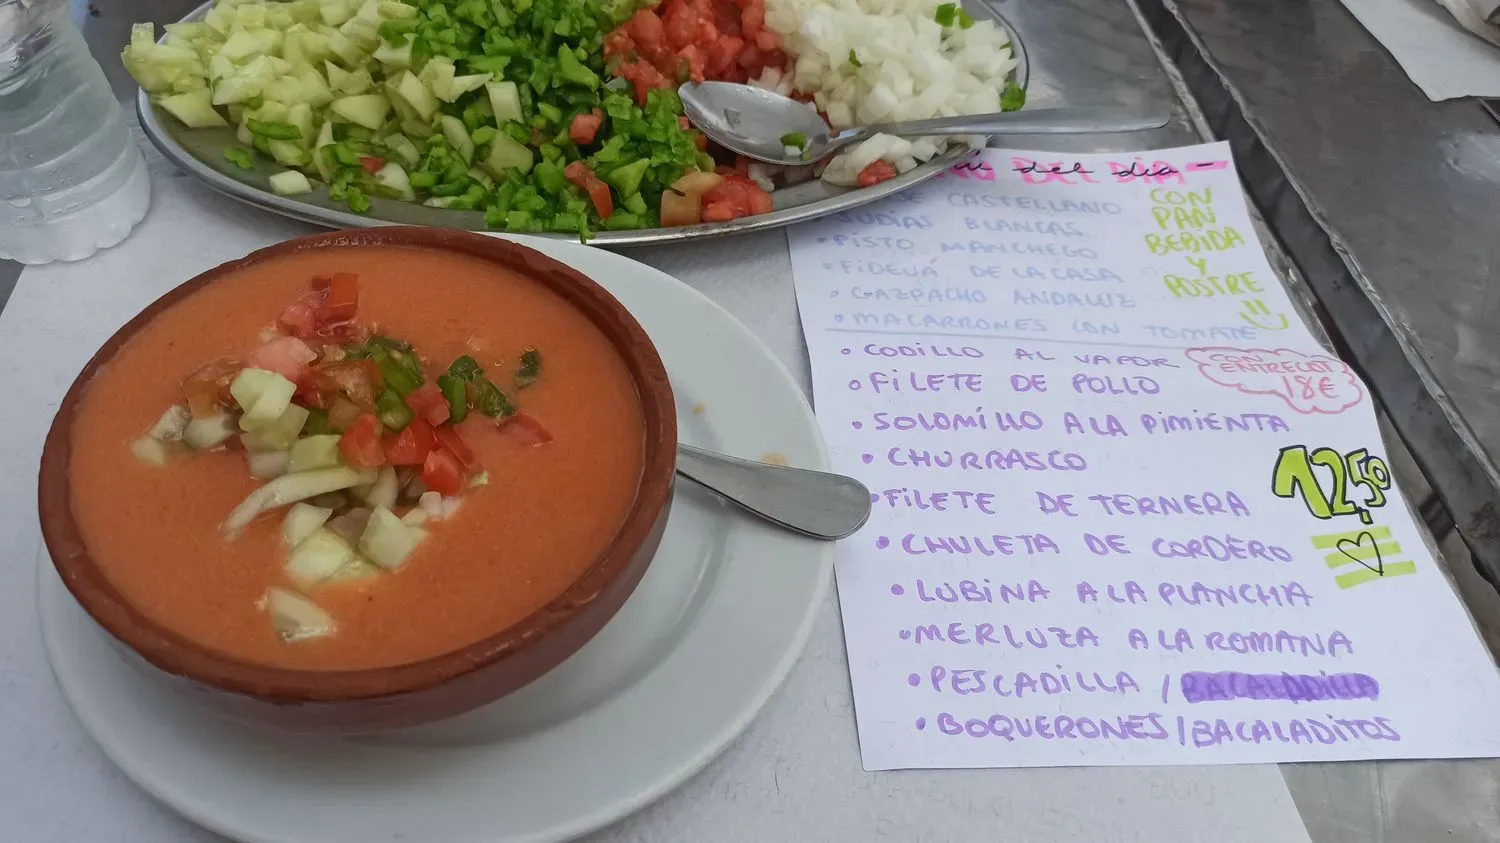 del día -
CASTELLANO
JUDÍAS BLANCAS
• PISTO MANCHEGO
• FIDEUÁ DE LA CASA
• GAZPACHO ANDALUZ
• MACARRONES CON TOMATE
CON
PAN
BEBIDA
Y
POSTRE
• CODILLO AL VAPOR
CON
ENTRECOT
18€
• FILETE DE POLLO
• SOLOMILLO A LA PIMIENTA
• CHURRASCO
• FILETE DE TERNERA
12,50
• CHULETA DE CORDERO
• LUBINA A LA PLANCHA
• MERLUZA A LA ROMANA
• PESCADILLA /
• BOQUERONES / BACALADITOS